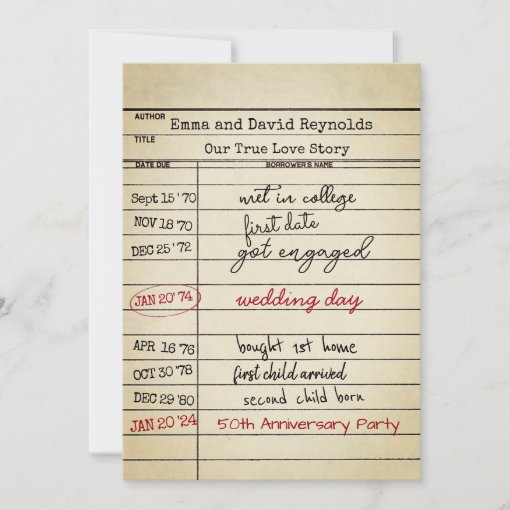 AUTHOR Emma and David Reynolds
TITLE Our True Love Story
DATE DUE BORROWER'S NAME
Sept 15 '70 met in college
NOV 18 '70 first date
DEC 25 '72 got engaged
JAN 20' 74 wedding day
APR 16 '76 bought 1st home
OCT 30 '78 first child arrived
DEC 29 '80 second child born
JAN 20 '24 50th Anniversary Party